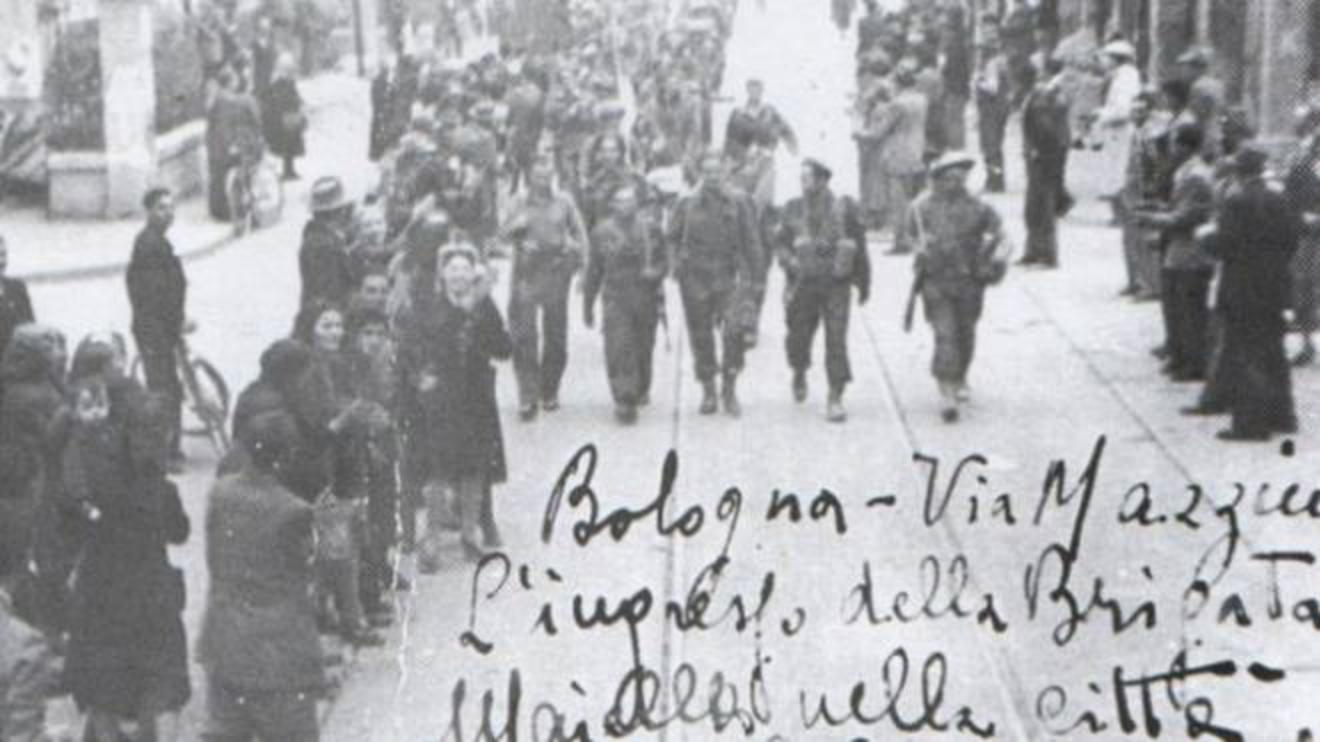 Bologna - Via Mazzini
L'ingresso della Brigata
Maiella nella città.